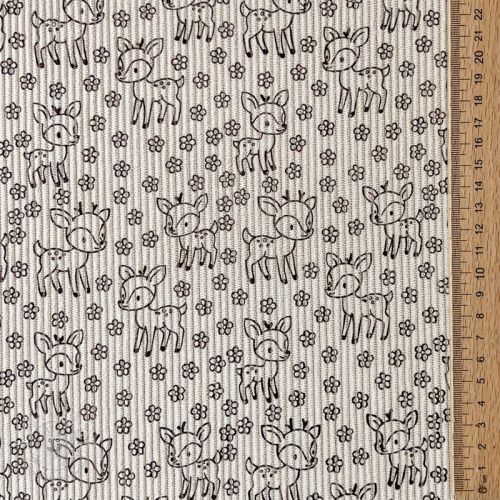 22
21
20
19
18
17
16
15
14
13
12
11
10
9
8
7
6
5
4
3
2
1
0 cm